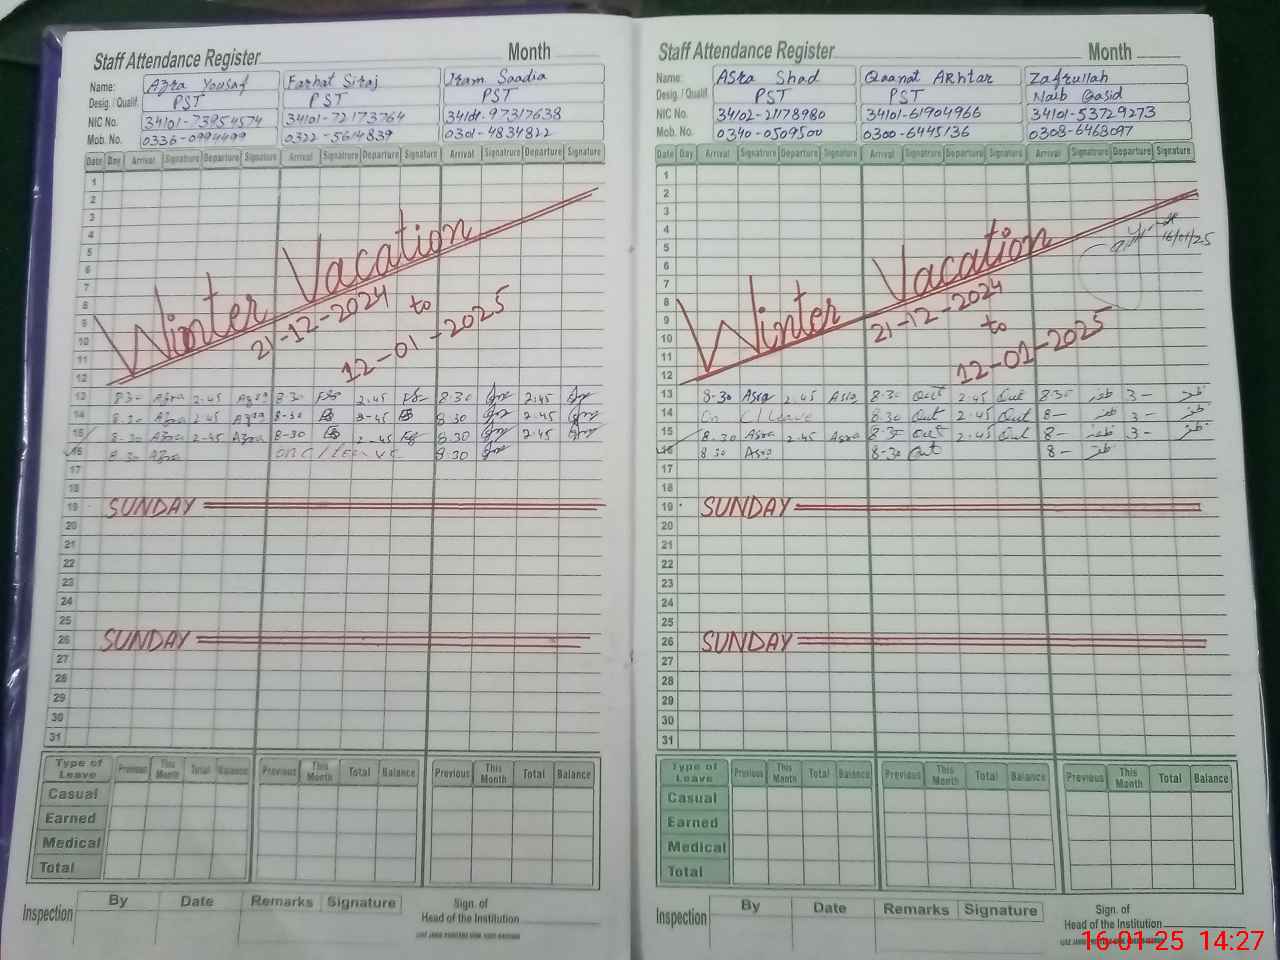 Staff Attendance Register Month
Name: Azra Yousaf Farhat Siraj Iram Saadia
Desig. / Qualif. PST PST PST
NIC No. 34101-73954574 34101-72173764 34101-97317638
Mob. No. 0336-0994499 0322-5614839 0301-4834822
Date Day Arrival Signature Departure Signature Arrival Signature Departure Signature Arrival Signature Departure Signature
1
2
3
4
5
6
7
8
9
10
11
12
Winter Vacation
21-12-2024 to
12-01-2025
13 8-30 Azra 2-45 Azra 8-30 2-45 8-30 2-45
14 8-30 Azra 2-45 Azra 8-30 2-45 8-30 2-45
15 8-30 Azra 2-45 Azra 8-30 2-45 8-30 2-45
16 8-30 Azra on c/leave 8-30
17
18
19 SUNDAY
20
21
22
23
24
25
26 SUNDAY
27
28
29
30
31
Type of Leave Previous This Month Total Balance Previous This Month Total Balance Previous This Month Total Balance
Casual
Earned
Medical
Total
Inspection By Date Remarks Signature
Sign. of
Head of the Institution
Staff Attendance Register Month
Name: Asra Shad Qaanat Akhtar Zafrullah
Desig. / Qualif. PST PST Naib Qasid
NIC No. 34102-21178980 34101-61904966 34101-53729273
Mob. No. 0340-0509500 0300-6445136 0308-6468097
Date Day Arrival Signature Departure Signature Arrival Signature Departure Signature Arrival Signature Departure Signature
1
2
3
4
5
6
7
8
9
10
11
12
16/01/25
Winter Vacation
21-12-2024
to
12-01-2025
13 8-30 Asra 2-45 Asra 8-30 2-45 8-30 ظفر 3- ظفر
14 On C/leave 8-30 2-45 8- ظفر 3- ظفر
15 8-30 Asra 2-45 Asra 8-30 2-45 8- ظفر 3- ظفر
16 8-30 Asra 8-30 8- ظفر
17
18
19 SUNDAY
20
21
22
23
24
25
26 SUNDAY
27
28
29
30
31
Type of Leave Previous This Month Total Balance Previous This Month Total Balance Previous This Month Total Balance
Casual
Earned
Medical
Total
Inspection By Date Remarks Signature
Sign. of
Head of the Institution
16-01-25 14:27